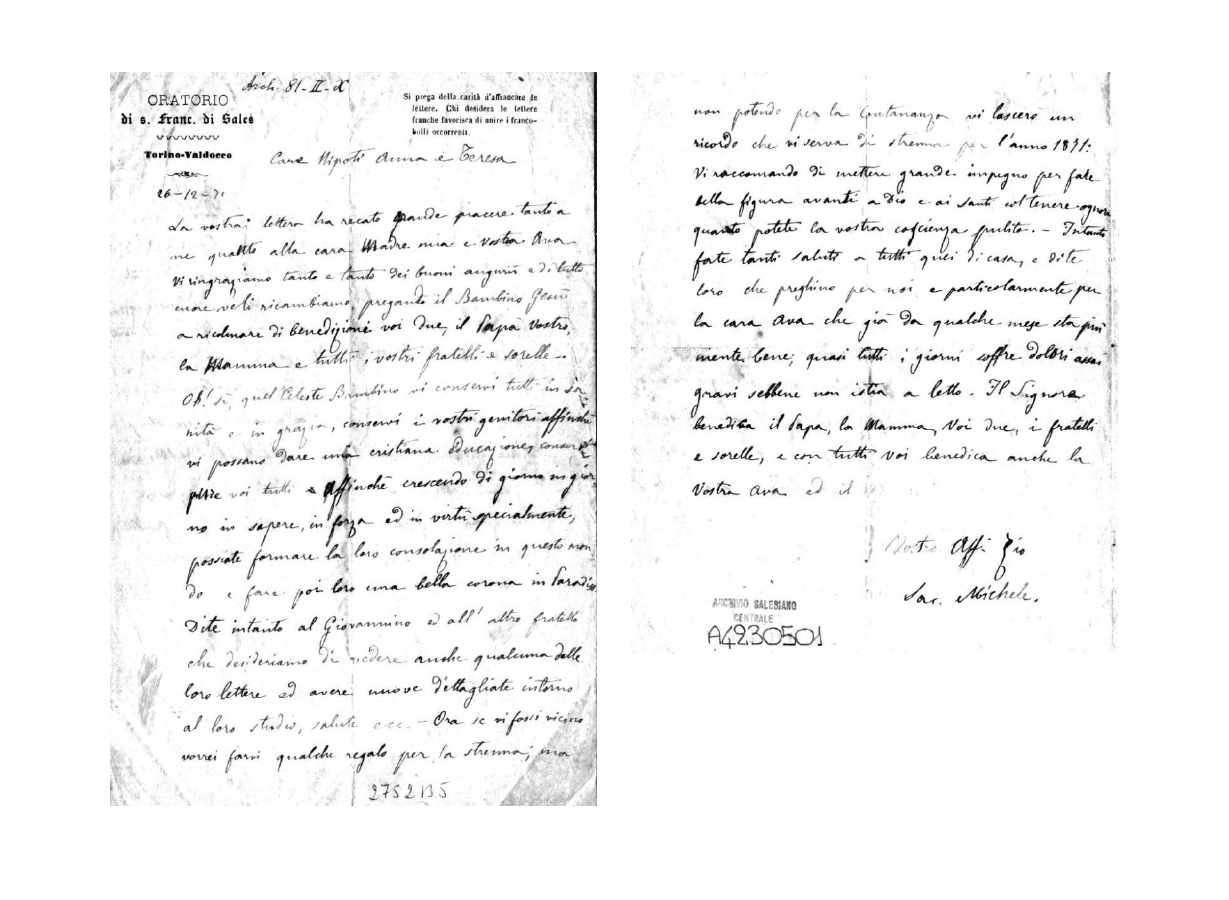 Arch. 81-II-X
ORATORIO
di s. Franc. di Sales
Torino-Valdocco
Si prega della carità d'affrancare le
lettere. Chi desidera le lettere
franche favorisca di unire i franco-
bolli occorrenti.
Care Nipoti Anna e Teresa
26-12-71
La vostra lettera ha recato grande piacere tanto a
me quanto alla cara Madre mia e vostra Ava
Vi ringraziamo tanto e tanto dei buoni augurii e di tutto
cuore ve li ricambiamo, pregando il Bambino Gesù
a ricolmare di benedizioni voi due, il Papà vostro,
la Mamma e tutti i vostri fratelli e sorelle.
Oh! sì, quel Celeste Bambino vi conservi tutti in sa-
nità e in grazia, conservi i vostri genitori affinchè
vi possano dare una cristiana educazione, conservi
pure voi tutti affinchè crescendo di giorno in gior-
no in sapere, in forza ed in virtù specialmente,
possiate formare la loro consolazione in questo mon-
do e fare poi loro una bella corona in Paradiso
Dite intanto al Giovannino ed all' altro fratello
che desideriamo di vedere anche qualcuna delle
loro lettere ed avere nuove dettagliate intorno
al loro studio, salute ecc. - Ora se vi fossi vicino
vorrei farvi qualche regalo per la strenna; ma
2752B5
non potendo per la lontananza vi lascerò un
ricordo che vi serva di strenna per l'anno 1871:
Vi raccomando di mettere grande impegno per fare
bella figura avanti a Dio e ai santi col tenere ognora
quanto potete la vostra coscienza pulita. - Intanto
fate tanti saluti a tutti quei di casa, e dite
loro che preghino per noi e particolarmente per
la cara Ava che già da qualche mese sta
mente bene; quasi tutti i giorni soffre dolori assai
gravi sebbene non istia a letto. Il Signore
benedica il Papa, la Mamma, Voi due, i fratelli
e sorelle, e con tutti voi benedica anche la
Vostra Ava ed il
Vostro Aff. Zio
Sac. Michele.
ARCHIVIO SALESIANO
CENTRALE
A4230501